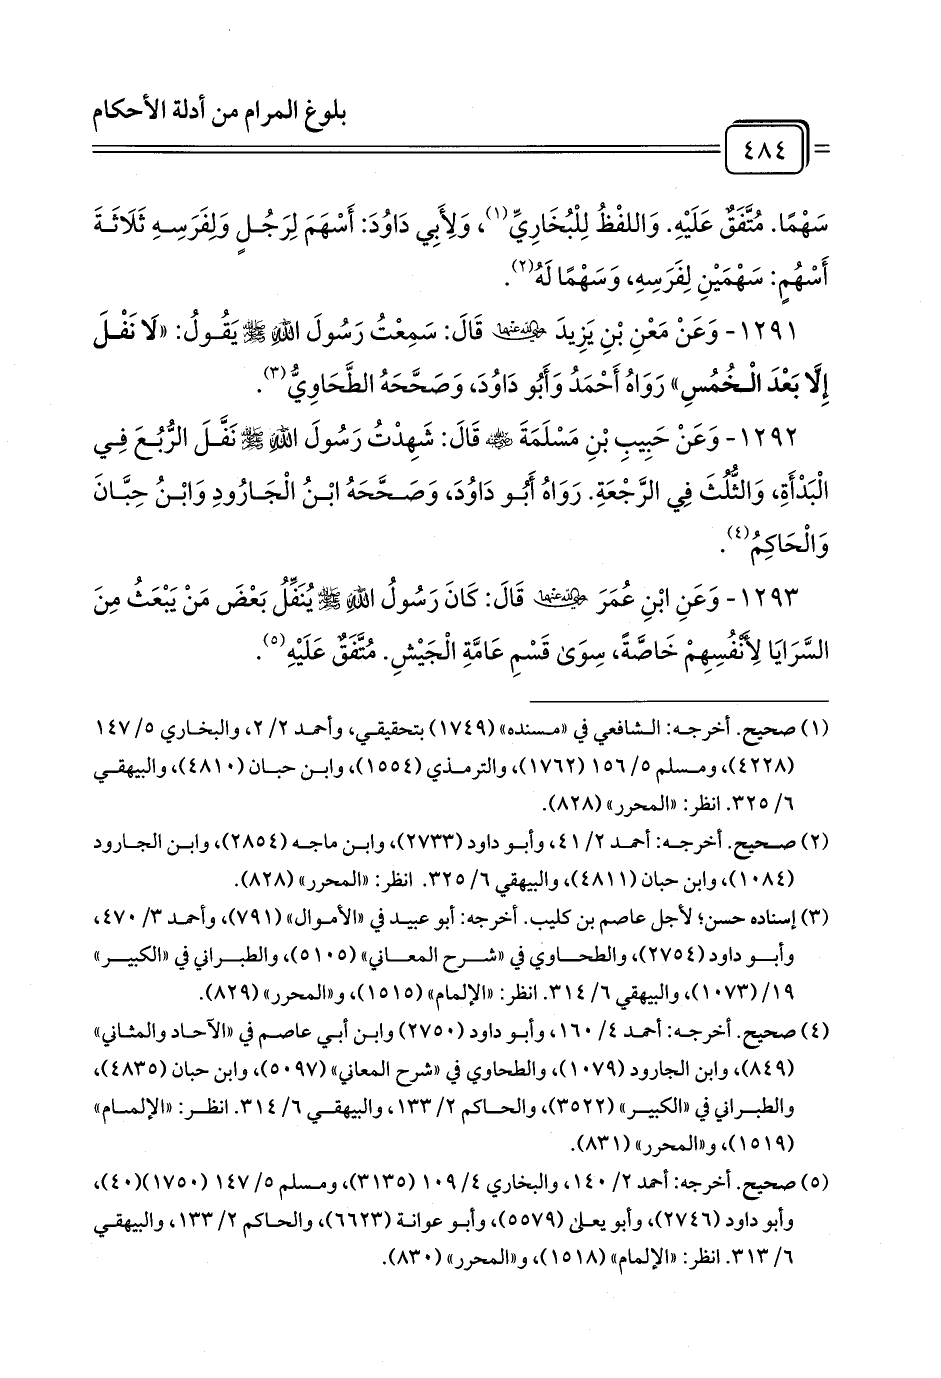 بلوغ المرام من أدلة الأحكام
٤٨٤
سَهْمًا. مُتَّفَقٌ عَلَيْهِ. وَاللفْظُ لِلْبُخَارِيِّ(١)، وَلِأَبِي دَاوُدَ: أَسْهَمَ لِرَجُلٍ وَلِفَرَسِهِ ثَلَاثَةَ
أَسْهُمٍ: سَهْمَيْنِ لِفَرَسِهِ، وَسَهْمًا لَهُ(٢).
١٢٩١- وَعَنْ مَعْنِ بْنِ يَزِيدَ رضي الله عنهما قَالَ: سَمِعْتُ رَسُولَ اللهِ ﷺ يَقُولُ: «لَا نَفْلَ
إِلَّا بَعْدَ الْخُمُسِ» رَوَاهُ أَحْمَدُ وَأَبُو دَاوُدَ، وَصَحَّحَهُ الطَّحَاوِيُّ(٣).
١٢٩٢- وَعَنْ حَبِيبِ بْنِ مَسْلَمَةَ رضي الله عنه قَالَ: شَهِدْتُ رَسُولَ اللهِ ﷺ نَفَّلَ الرُّبُعَ فِي
الْبَدْأَةِ، وَالثُّلُثَ فِي الرَّجْعَةِ. رَوَاهُ أَبُو دَاوُدَ، وَصَحَّحَهُ ابْنُ الْجَارُودِ وَابْنُ حِبَّانَ
وَالْحَاكِمُ(٤).
١٢٩٣- وَعَنِ ابْنِ عُمَرَ رضي الله عنهما قَالَ: كَانَ رَسُولُ اللهِ ﷺ يُنَفِّلُ بَعْضَ مَنْ يَبْعَثُ مِنَ
السَّرَايَا لِأَنْفُسِهِمْ خَاصَّةً، سِوَىٰ قَسْمِ عَامَّةِ الْجَيْشِ. مُتَّفَقٌ عَلَيْهِ(٥).
(١) صحيح. أخرجه: الشافعي في «مسنده» (١٧٤٩) بتحقيقي، وأحمد ٢/ ٢، والبخاري ٥/ ١٤٧
(٤٢٢٨)، ومسلم ٥/ ١٥٦ (١٧٦٢)، والترمذي (١٥٥٤)، وابن حبان (٤٨١٠)، والبيهقي
٦/ ٣٢٥. انظر: «المحرر» (٨٢٨).
(٢) صحيح. أخرجه: أحمد ٢/ ٤١، وأبو داود (٢٧٣٣)، وابن ماجه (٢٨٥٤)، وابن الجارود
(١٠٨٤)، وابن حبان (٤٨١١)، والبيهقي ٦/ ٣٢٥. انظر: «المحرر» (٨٢٨).
(٣) إسناده حسن؛ لأجل عاصم بن كليب. أخرجه: أبو عبيد في «الأموال» (٧٩١)، وأحمد ٣/ ٤٧٠،
وأبو داود (٢٧٥٤)، والطحاوي في «شرح المعاني» (٥١٠٥)، والطبراني في «الكبير»
١٩/ (١٠٧٣)، والبيهقي ٦/ ٣١٤. انظر: «الإلمام» (١٥١٥)، و«المحرر» (٨٢٩).
(٤) صحيح. أخرجه: أحمد ٤/ ١٦٠، وأبو داود (٢٧٥٠) وابن أبي عاصم في «الآحاد والمثاني»
(٨٤٩)، وابن الجارود (١٠٧٩)، والطحاوي في «شرح المعاني» (٥٠٩٧)، وابن حبان (٤٨٣٥)،
والطبراني في «الكبير» (٣٥٢٢)، والحاكم ٢/ ١٣٣، والبيهقي ٦/ ٣١٤. انظر: «الإلمام»
(١٥١٩)، و«المحرر» (٨٣١).
(٥) صحيح. أخرجه: أحمد ٢/ ١٤٠، والبخاري ٤/ ١٠٩ (٣١٣٥)، ومسلم ٥/ ١٤٧ (١٧٥٠)(٤٠)،
وأبو داود (٢٧٤٦)، وأبو يعلى (٥٥٧٩)، وأبو عوانة (٦٦٢٣)، والحاكم ٢/ ١٣٣، والبيهقي
٦/ ٣١٣. انظر: «الإلمام» (١٥١٨)، و«المحرر» (٨٣٠).